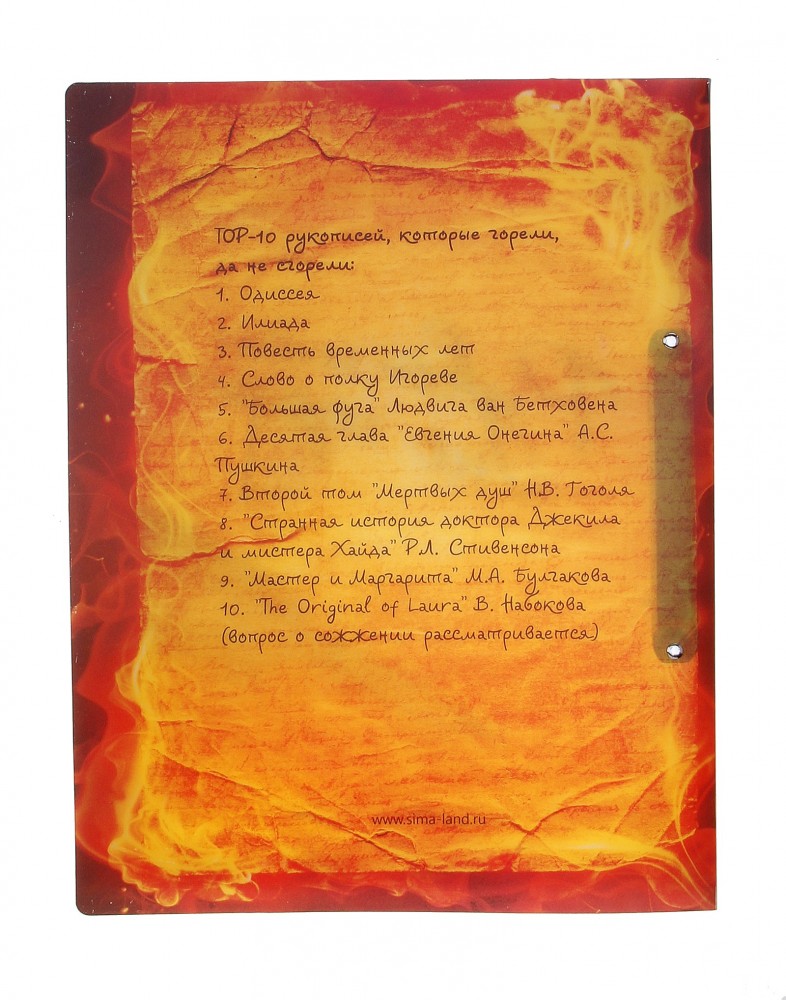 TOP-10 рукописей, которые горели,
да не сгорели:
1. Одиссея
2. Илиада
3. Повесть временных лет
4. Слово о полку Игореве
5. "Большая фуга" Людвига ван Бетховена
6. Десятая глава "Евгения Онегина" А.С.
Пушкина
7. Второй том "Мертвых душ" Н.В. Гоголя
8. "Странная история доктора Джекила
и мистера Хайда" Р.Л. Стивенсона
9. "Мастер и Маргарита" М.А. Булгакова
10. "The Original of Laura" В. Набокова
(вопрос о сожжении рассматривается)
www.sima-land.ru